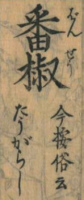 番椒
ばん せう
今按俗云
たうがらし